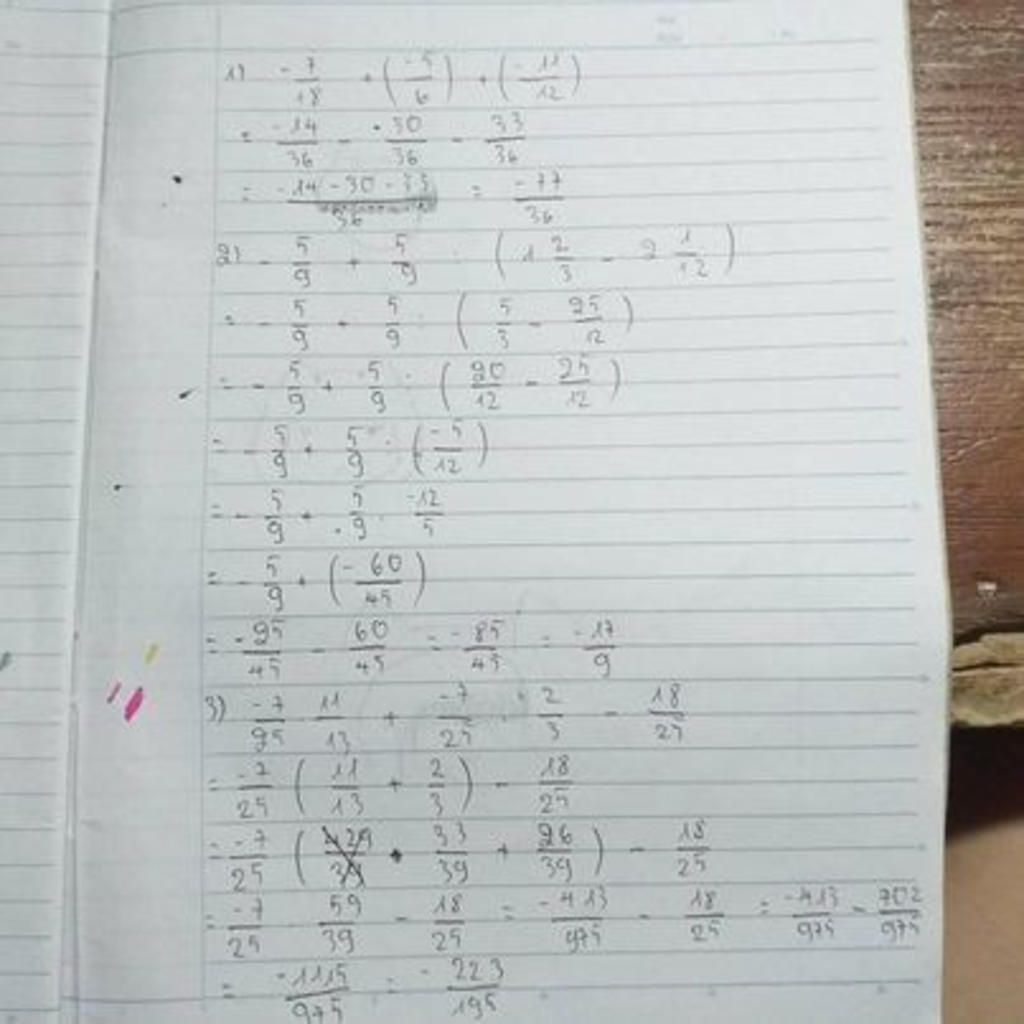 1) -7/18 + (-5/6) + (-11/12)
= -14/36 - 30/36 - 33/36
= -14-30-33/36 = -77/36
2) -5/9 + 5/9 : (1 2/3 - 2 1/12)
= -5/9 + 5/9 : (5/3 - 25/12)
= -5/9 + 5/9 : (20/12 - 25/12)
= -5/9 + 5/9 : (-5/12)
= -5/9 + 5/9 . -12/5
= -5/9 + (-60/45)
= -25/45 - 60/45 = -85/45 = -17/9
3) -7/25 . 11/13 + -7/25 . 2/3 - 18/25
= -7/25 (11/13 + 2/3) - 18/25
= -7/25 (33/39 + 26/39) - 18/25
= -7/25 . 59/39 - 18/25 = -413/975 - 18/25 = -413/975 - 702/975
= -1115/975 = -223/195